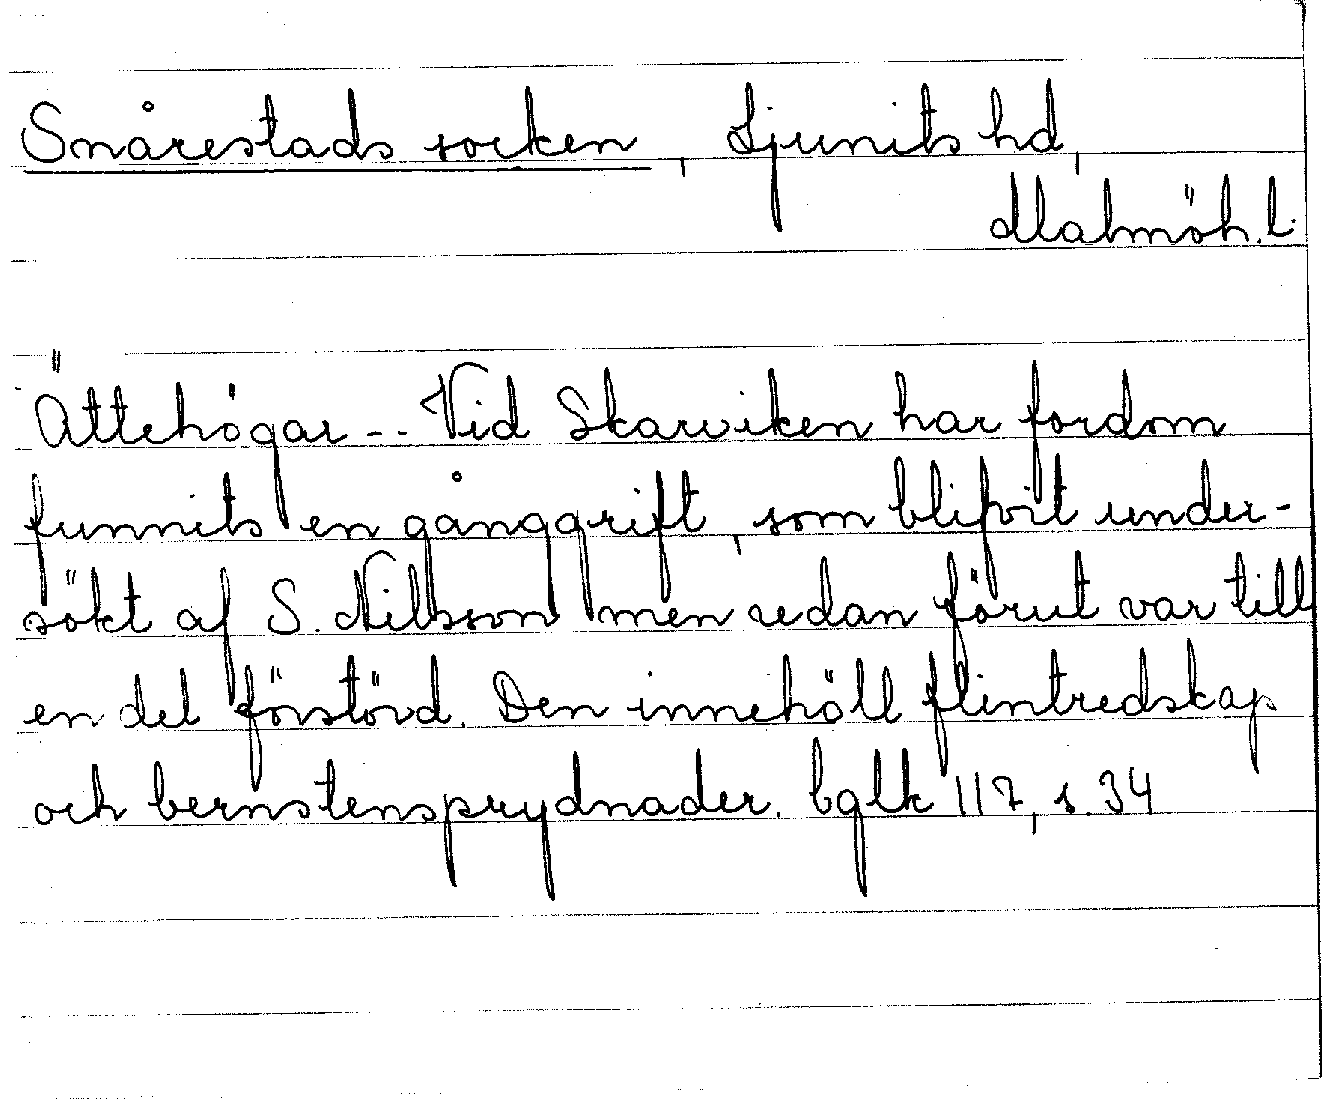 Snårestads socken, Ljunits hd,
Malmöh. l.
Ättehögar -- Vid Skarviken har fordom
funnits en gånggrift, som blifvit under-
sökt af S. Nilsson men redan förut var till
en del förstörd. Den innehöll flintredskap
och bernstensprydnader. bglk 117, s. 34